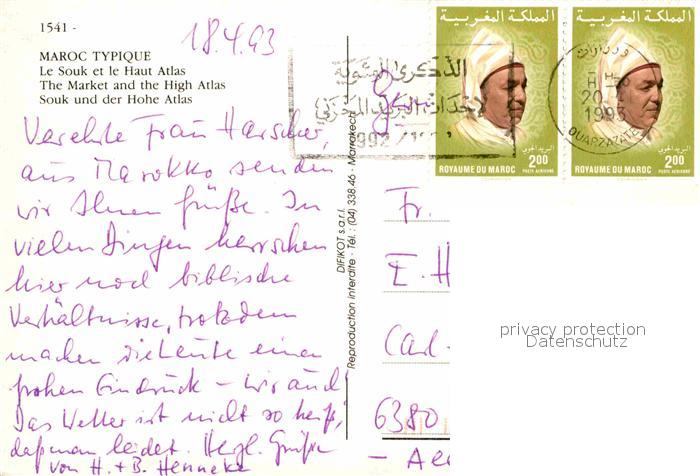 1541 -
18.4.93
MAROC TYPIQUE
Le Souk et le Haut Atlas
The Market and the High Atlas
Souk und der Hohe Atlas
Verehrte Frau Harscher,
aus Marokko senden
wir Ihnen Grüße. In
vielen Dingen herrschen
hier noch biblische
Verhältnisse, trotzdem
machen die Leute einen
frohen Eindruck – wir auch!
Das Wetter ist nicht so heiß,
daß man leidet. Herzl. Grüße
von H. + B. Henneke
DIFIKOT s.a.r.l.
Reproduction interdite - Tél.: (04) 338.46 - Marrakech
الذكرى المئوية
لإحداث البريد المخزني
1992
المملكة المغربية
2,00
البريد الجوي
ROYAUME DU MAROC
POSTE AERIENNE
المملكة المغربية
2,00
البريد الجوي
ROYAUME DU MAROC
POSTE AERIENNE
ورزازات
20
1993
OUARZAZATE
Fr.
E. H
Carl-
6380
privacy protection
Datenschutz